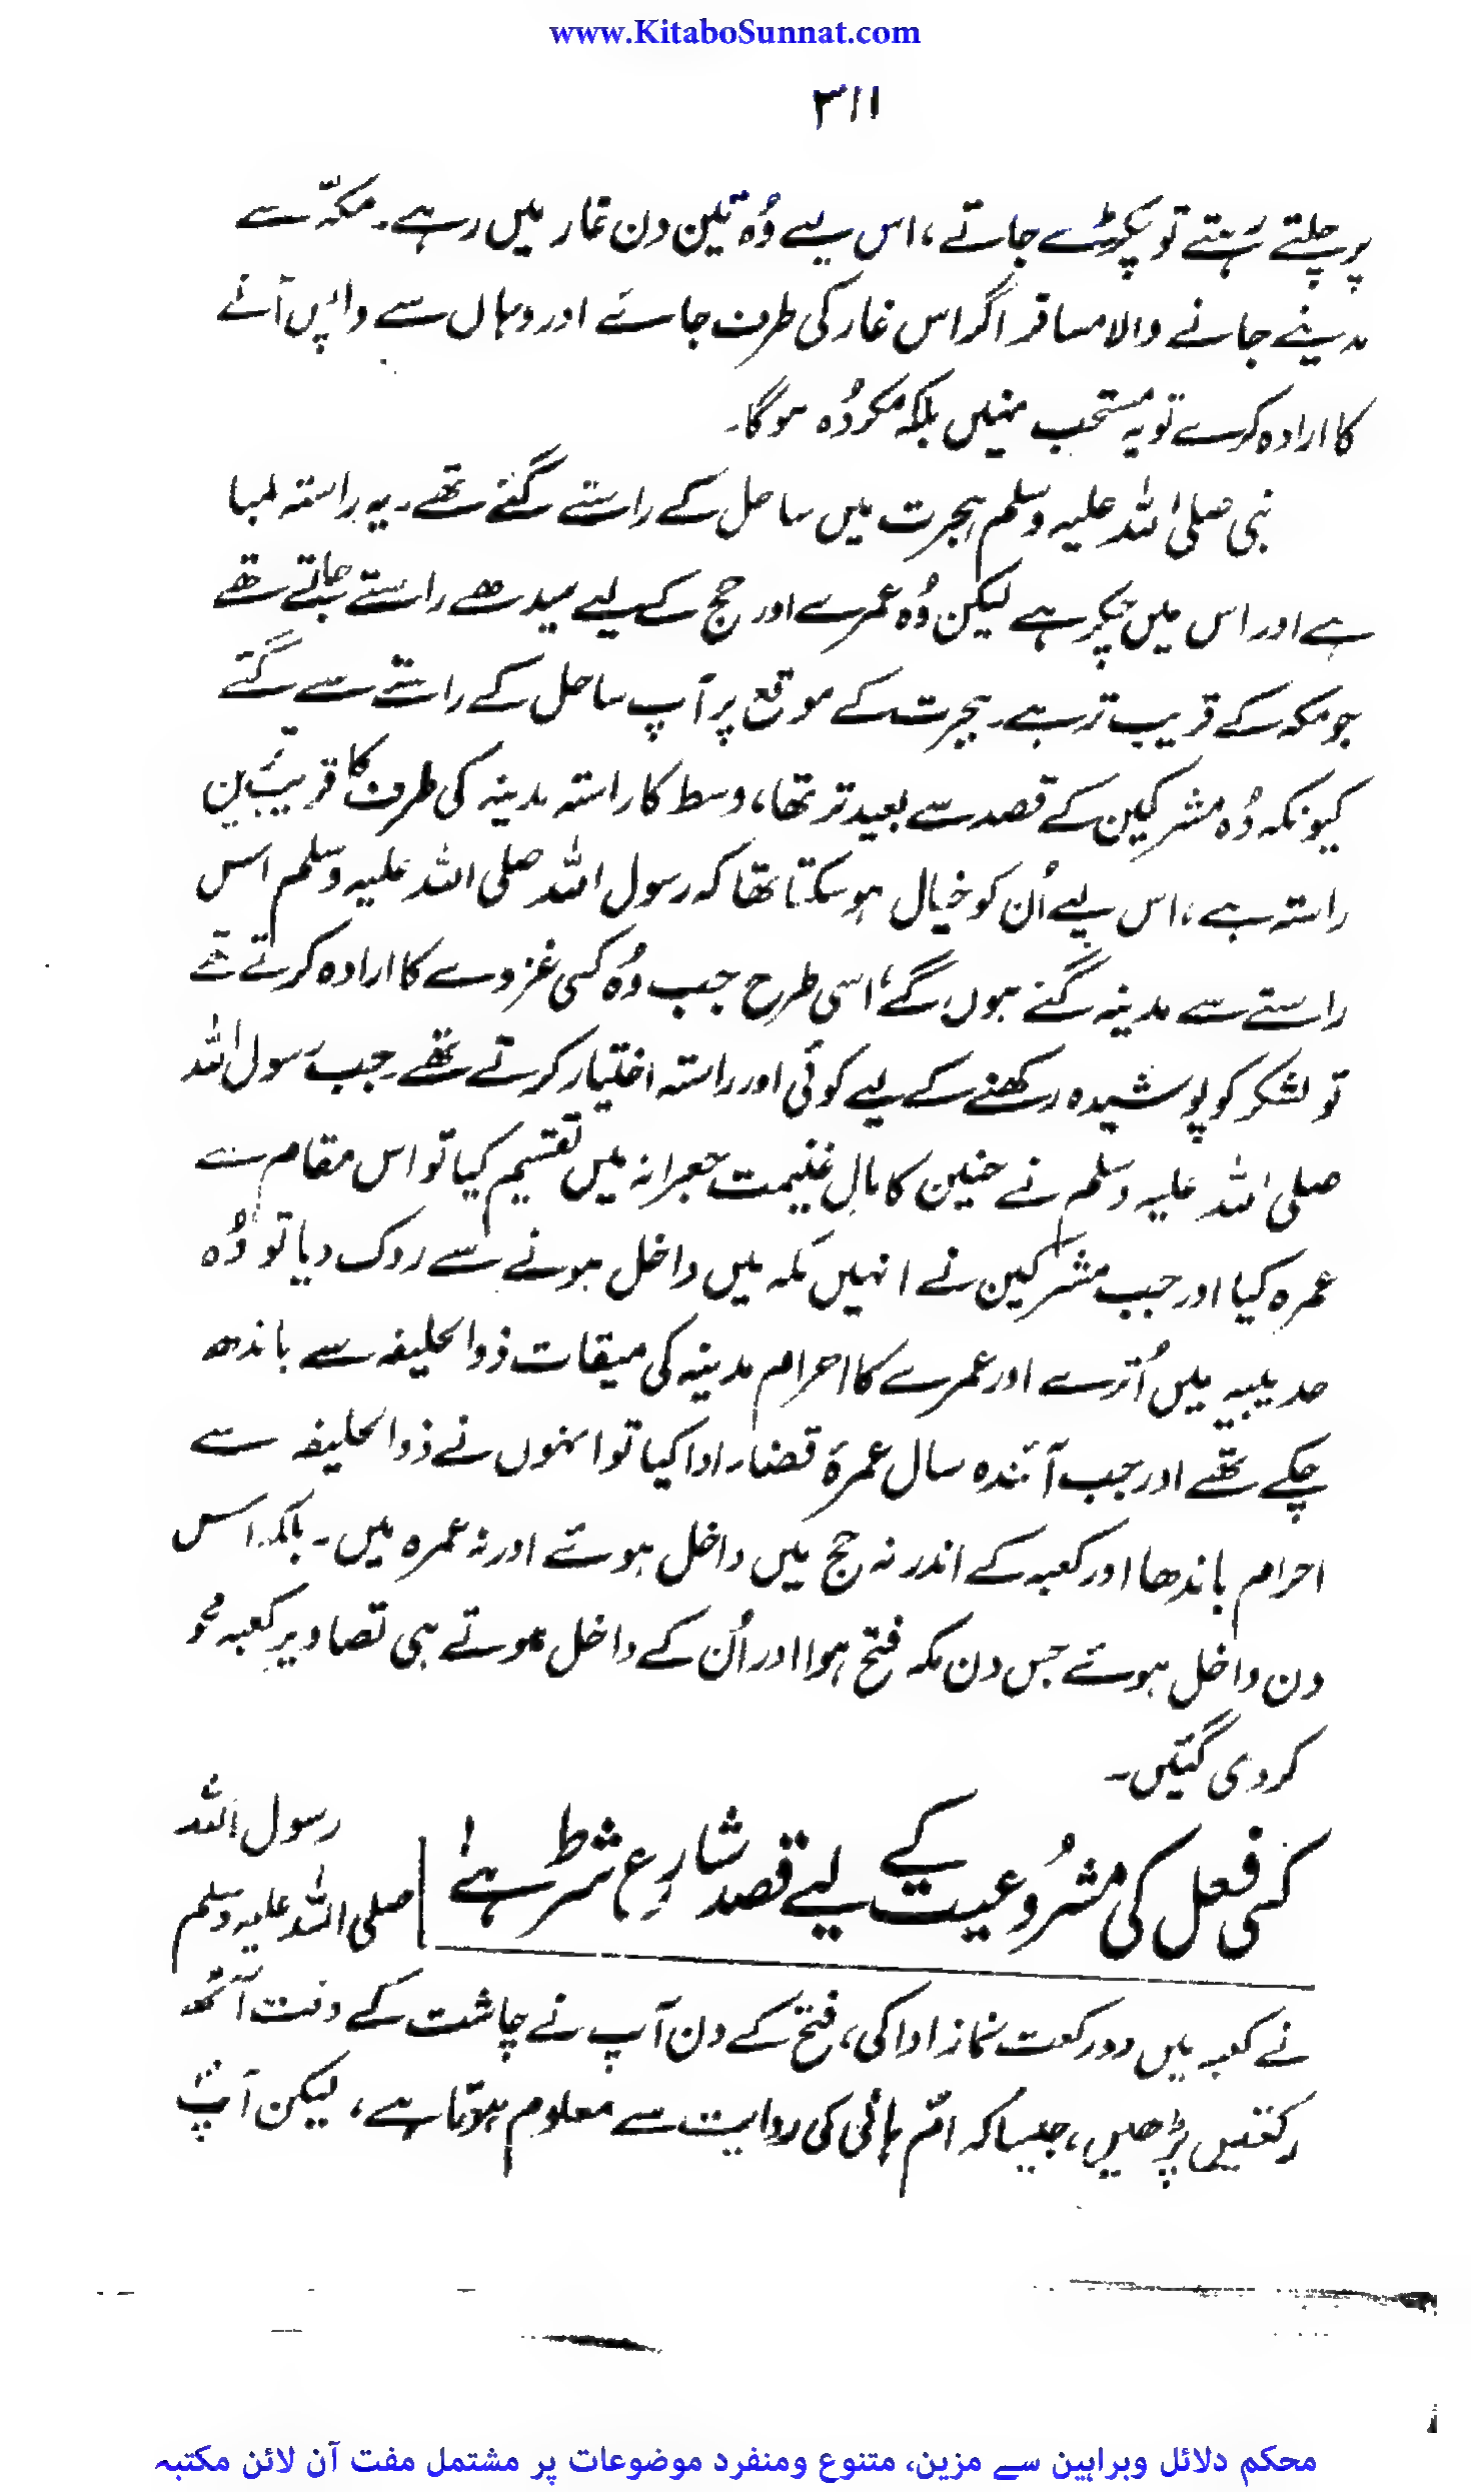 www.KitaboSunnat.com
۳۱۱
پر چلتے رہتے تو پکڑے جاتے، اس لیے وُہ تین دن غار میں رہے۔ مکہّ سے
مدینے جانے والا مسافر اگر اس غار کی طرف جائے اور وہاں سے واپس آنے
کا ارادہ کرے تو یہ مستحب نہیں بلکہ مکروُہ ہوگا۔
نبی صلی اللہ علیہ وسلم ہجرت میں ساحل کے راستے گئے تھے۔ یہ راستہ لمبا
ہے اور اس میں چکر ہے لیکن وُہ عمرے اور حج کے لیے سیدھے راستے جاتے تھے
جو مکہ کے قریب تر ہے۔ ہجرت کے موقع پر آپ ساحل کے راستے سے گئے
کیونکہ وُہ مشرکین کے قصد سے بعید تر تھا، وسط کا راستہ مدینہ کی طرف کا قریب ترین
راستہ ہے، اس لیے اُن کو خیال ہو سکتا تھا کہ رسول اللہ صلی اللہ علیہ وسلم اس
راستے سے مدینہ گئے ہوں گے، اسی طرح جب وُہ کسی غزوے کا ارادہ کرتے تھے
تو لشکر کو پوشیدہ رکھنے کے لیے کوئی اور راستہ اختیار کرتے تھے۔ جب رسول اللہ
صلی اللہ علیہ وسلم نے حنین کا مالِ غنیمت جعرانہ میں تقسیم کیا تو اس مقام سے
عمرہ کیا اور جب مشرکین نے انہیں مکہ میں داخل ہونے سے روک دیا تو وُہ
حدیبیہ میں اُترے اور عمرے کا احرام مدینہ کی میقات ذوالحلیفہ سے باندھ
چکے تھے اور جب آئندہ سال عمرۂ قضاء ادا کیا تو انہوں نے ذوالحلیفہ سے
احرام باندھا اور کعبہ کے اندر نہ حج میں داخل ہوئے اور نہ عمرہ میں۔ بلکہ اس
دن داخل ہوئے جس دن مکہ فتح ہوا اور اُن کے داخل ہوتے ہی تصاویرِ کعبہ محو
کر دی گئیں۔
کسی فعل کی مشرُوعیت کے لیے قصدِ شارع شرط ہے
رسول اللہ
صلی اللہ علیہ وسلم
نے کعبہ میں دو رکعت نماز ادا کی، فتح کے دن آپ نے چاشت کے وقت آٹھ
رکعتیں پڑھیں، جیسا کہ امّ ہانی کی روایت سے معلوم ہوتا ہے، لیکن آپ
محکم دلائل وبراہین سے مزین، متنوع ومنفرد موضوعات پر مشتمل مفت آن لائن مکتبہ